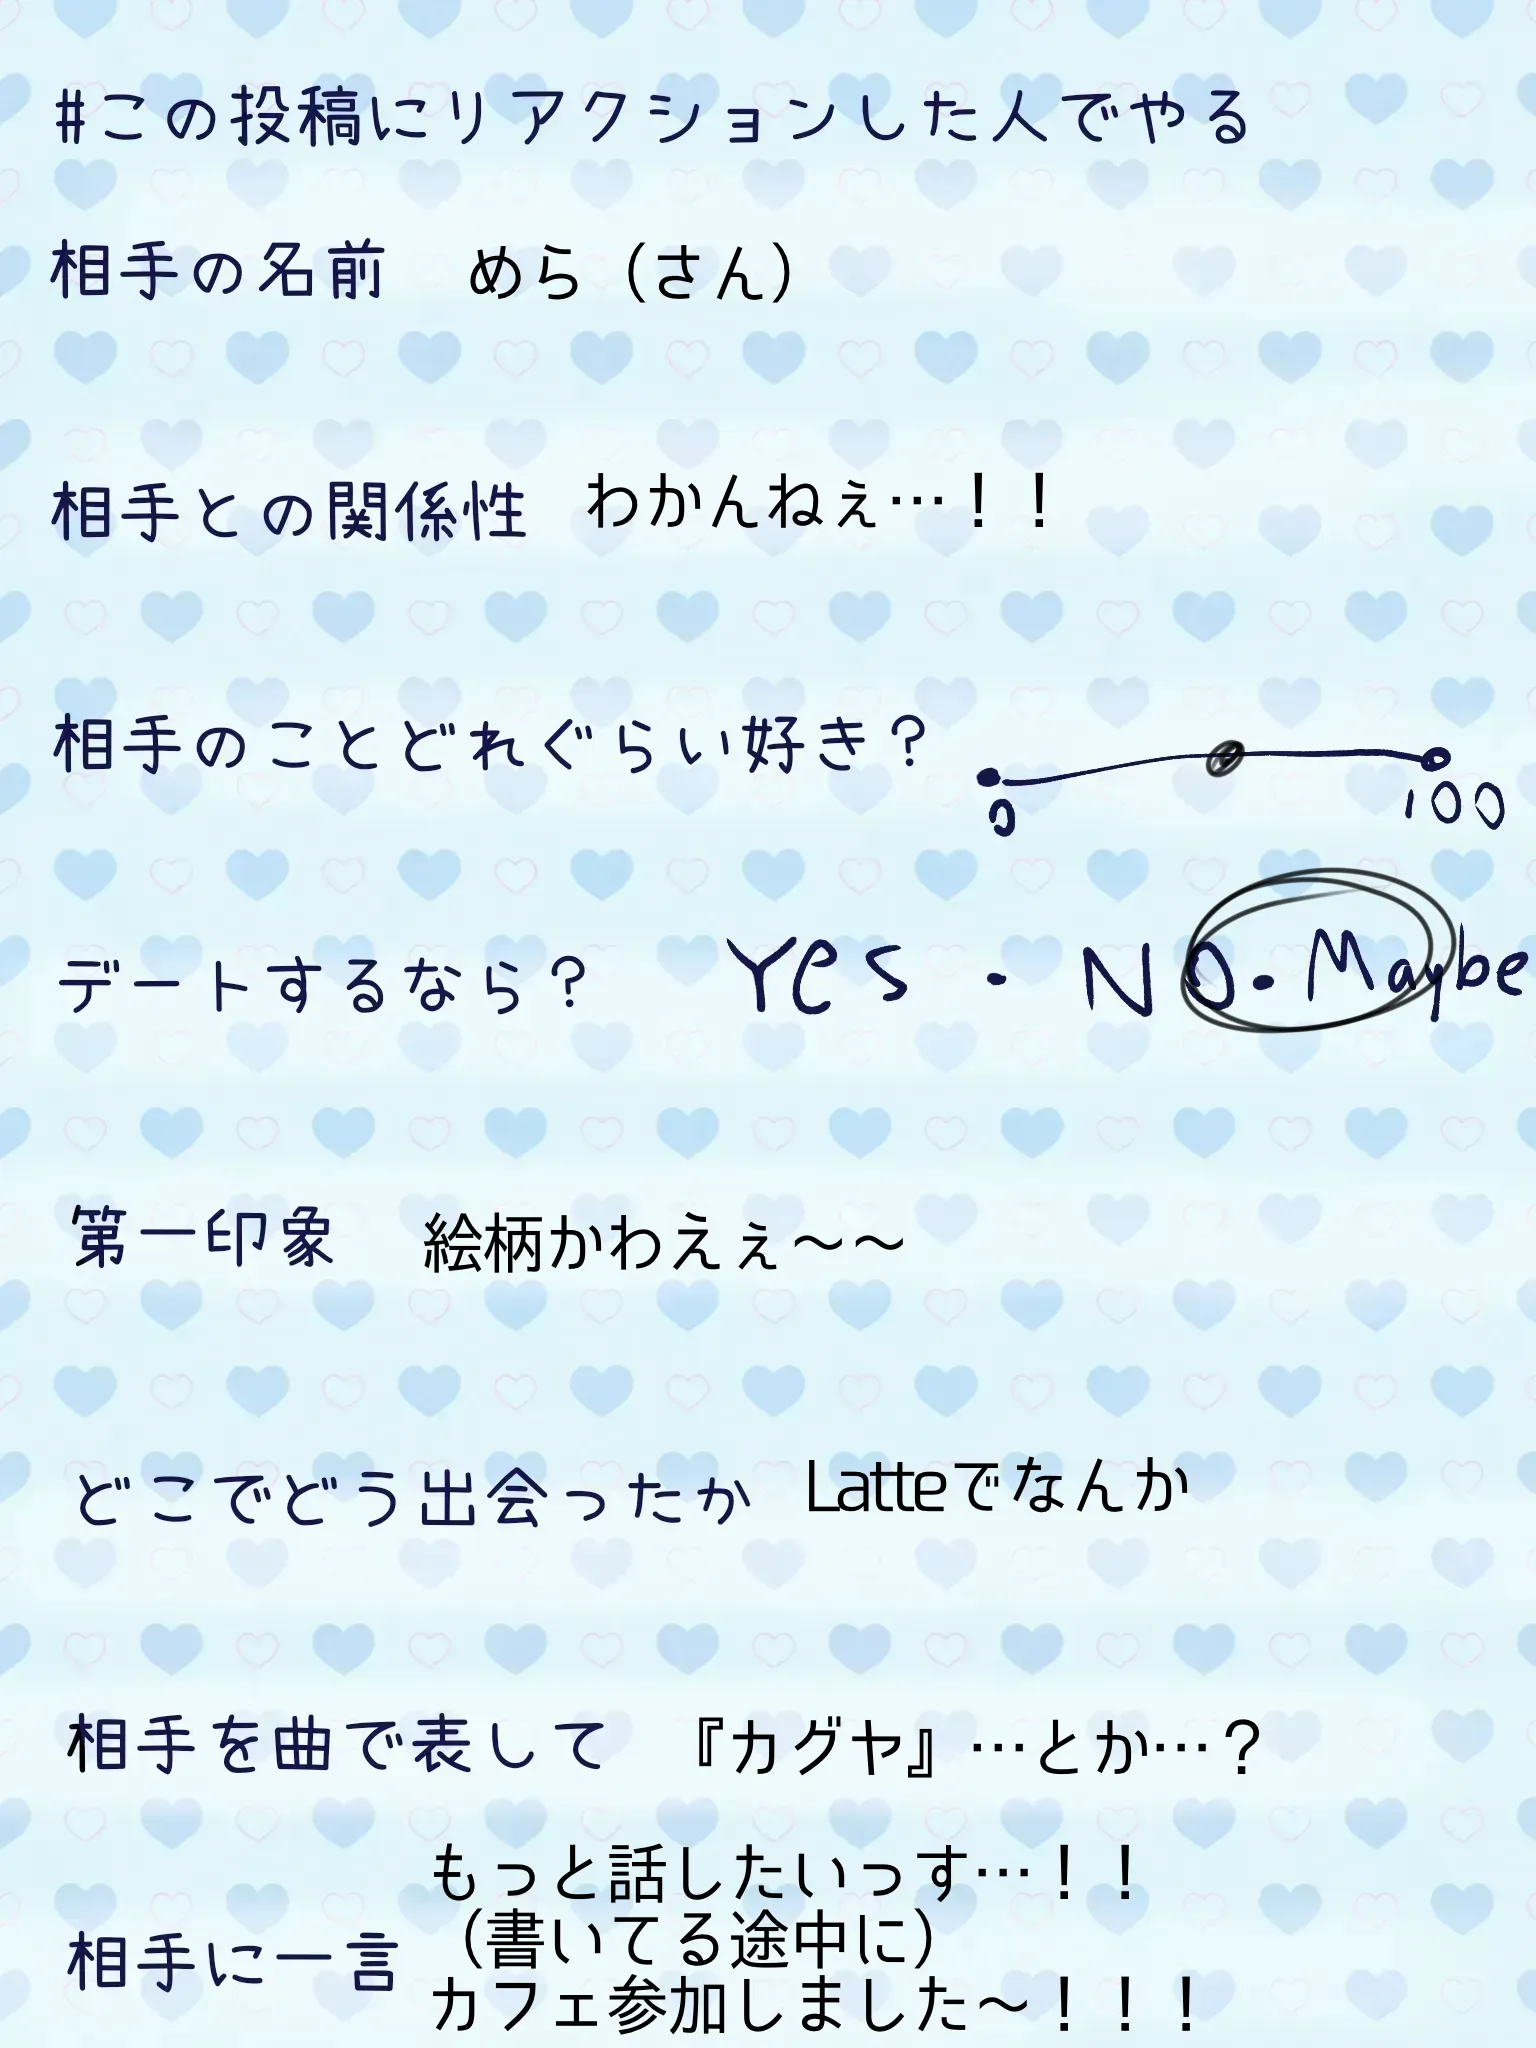 #この投稿にリアクションした人でやる
相手の名前 めら（さん）
相手との関係性 わかんねぇ…！！
相手のことどれぐらい好き？ 0 100
デートするなら？ Yes・NO・Maybe
第一印象 絵柄かわえぇ～～
どこでどう出会ったか Latteでなんか
相手を曲で表して 『カグヤ』…とか…？
相手に一言 もっと話したいっす…！！
（書いてる途中に）
カフェ参加しました～！！！